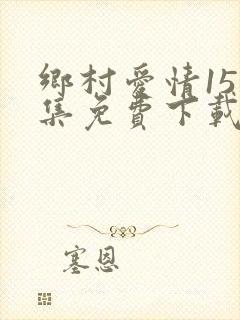 鄉村愛情15
集免費下載
塞恩